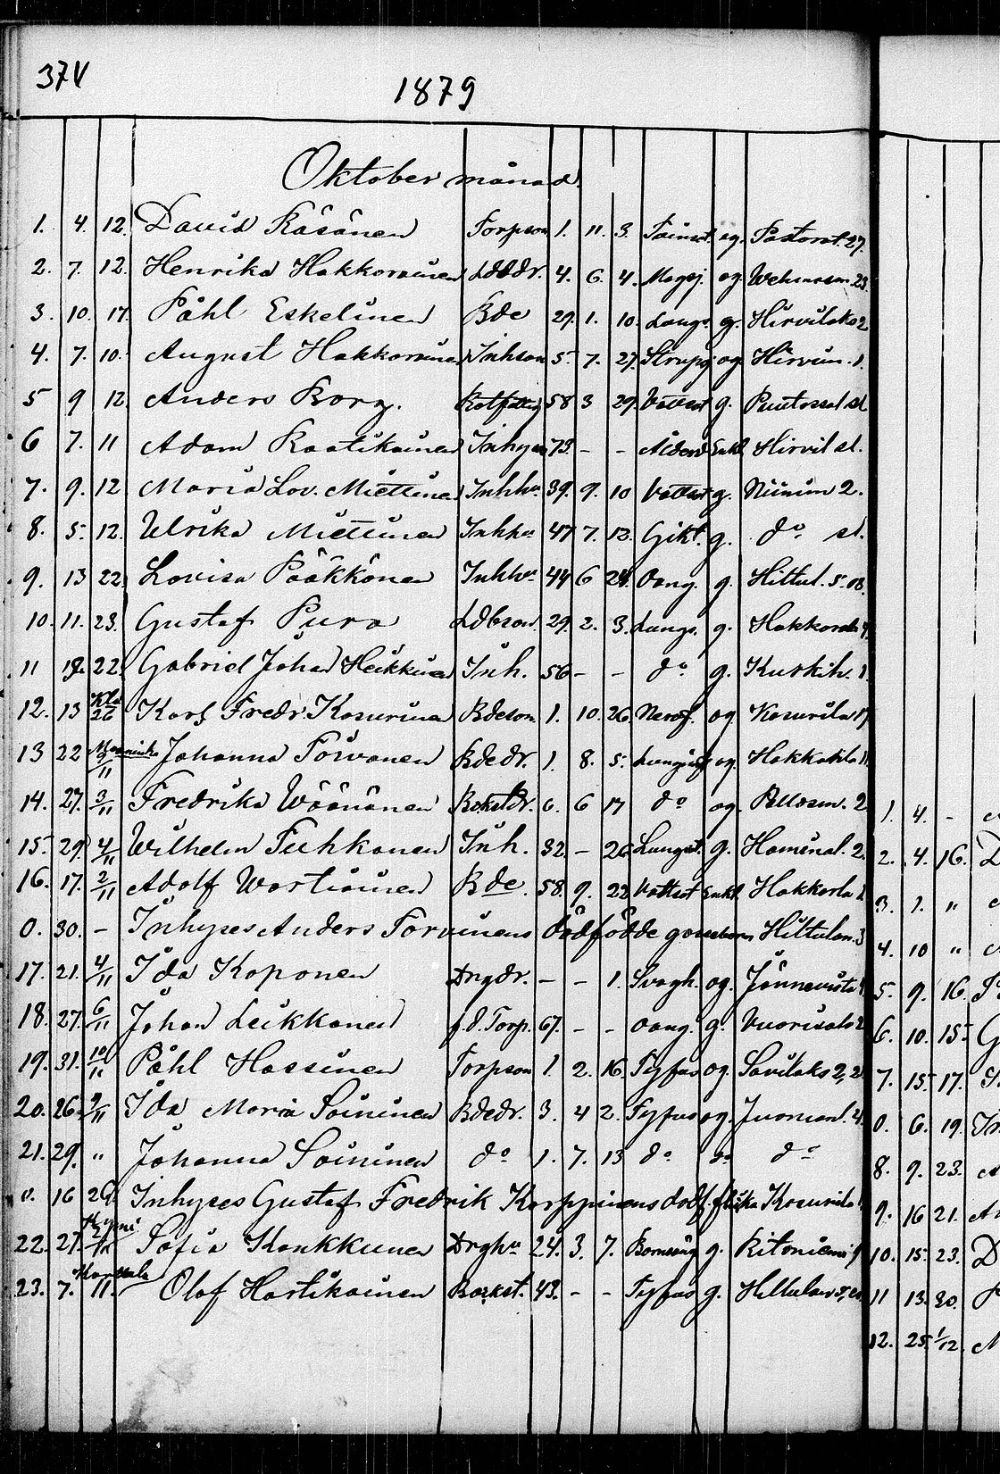 374
1879
Oktober månad.
1. 4. 12. David Räsänen Torpson 1. 11. 3. og. Pastorat. 27.
2. 7. 12. Henrika Hakkarainen Ldbdr. 4. 6. 4. Magsj. og
3. 10. 17. Påhl Eskelinen Bde 29. 1. 10. Lungs. g. Hirvilaks 2
4. 7. 10. August Hakkarainen Inhson 5. 7. 27. Strupsj og Hirvin. 1.
5 9 12. Anders Borg. Rotfattig 58 3 29. Vattus g.
6 7. 11 Adam Raatikainen Inhysn 73. - - Ålderd Enkl Hirvil sl.
7. 9. 12 Maria Lov. Miettinen Inhhu. 39. 9. 10 Vattus g. Niinim 2.
8. 5. 12. Ulrika Miettinen Inhhu 47 7. 13. Gikt. g. do sl.
9. 13 22. Lovisa Pääkkönen Inhhu 44 6 24. g. Hiltul. 5.
10. 11. 23. Gustaf Pura Ldbson 29. 2. 3. Lungs. g. Hakkarala
11 18. 22. Gabriel Johan Heikkinen Inh. 56 - - do g. Kurkih. 1.
12. 13 26 Karl Fredr. Kasurinen Bdeson 1. 10. 26 Nervf. og Kasurila 17
13 22 /11 Johanna Torvanen Bdedr. 1. 8. 5. Lungsj og. Hakkarla 11
14. 27. 3/11 Fredrika Väänänen Bokstdr. 6. 6 17 do og Pellosm. 2
15. 29. 4/11 Wilhelm Tuhkanen Inh. 32. - 26 Lungst. g. Haminal. 2.
16. 17. 2/11 Adolf Wartiainen Bde. 58. 9. 22 Vattsot Enkl. Hakkarla 2
0. 30. - Inhyses Anders Torvinens dödfödde gossebarn Hiltulan. 3
17. 21. 4/11 Ida Koponen Drgdr. - - 1. Svagh. og. Jännevirta
18. 27. 6/11 Johan Leikkanen f.d. Torp. 67. - - g. Vuorisalo 2
19. 31. 10/11 Påhl Hassinen Torpson 1. 2. 16. Tyfus og. Savilaks 2,
20. 26. 9/11 Ida Maria Soininen Bdedr. 3. 4 2. Tyfus og. 4
21. 29. " Johanna Soininen do 1. 7. 13 do do do
0. 16 29. Inhyses Gustaf Fredrik Korppinens dödf. flicka Kasurila
22. 27. Sofia Kankkunen Drghu 24. 3. 7. Barnsäng g. Ritoniemi 9
23. 7. 11. Olof Hartikainen Backst. 43. - - Tyfus g.
1. 4. -
2. 4. 16. D
3. 7. "
4. 10 "
5. 9. 16.
6. 10. 15. G
7. 15. 17.
0. 6. 19. In
8. 9. 23.
9. 16 21.
10. 15. 23. D
11 13. 30.
12. 25. 1/12.